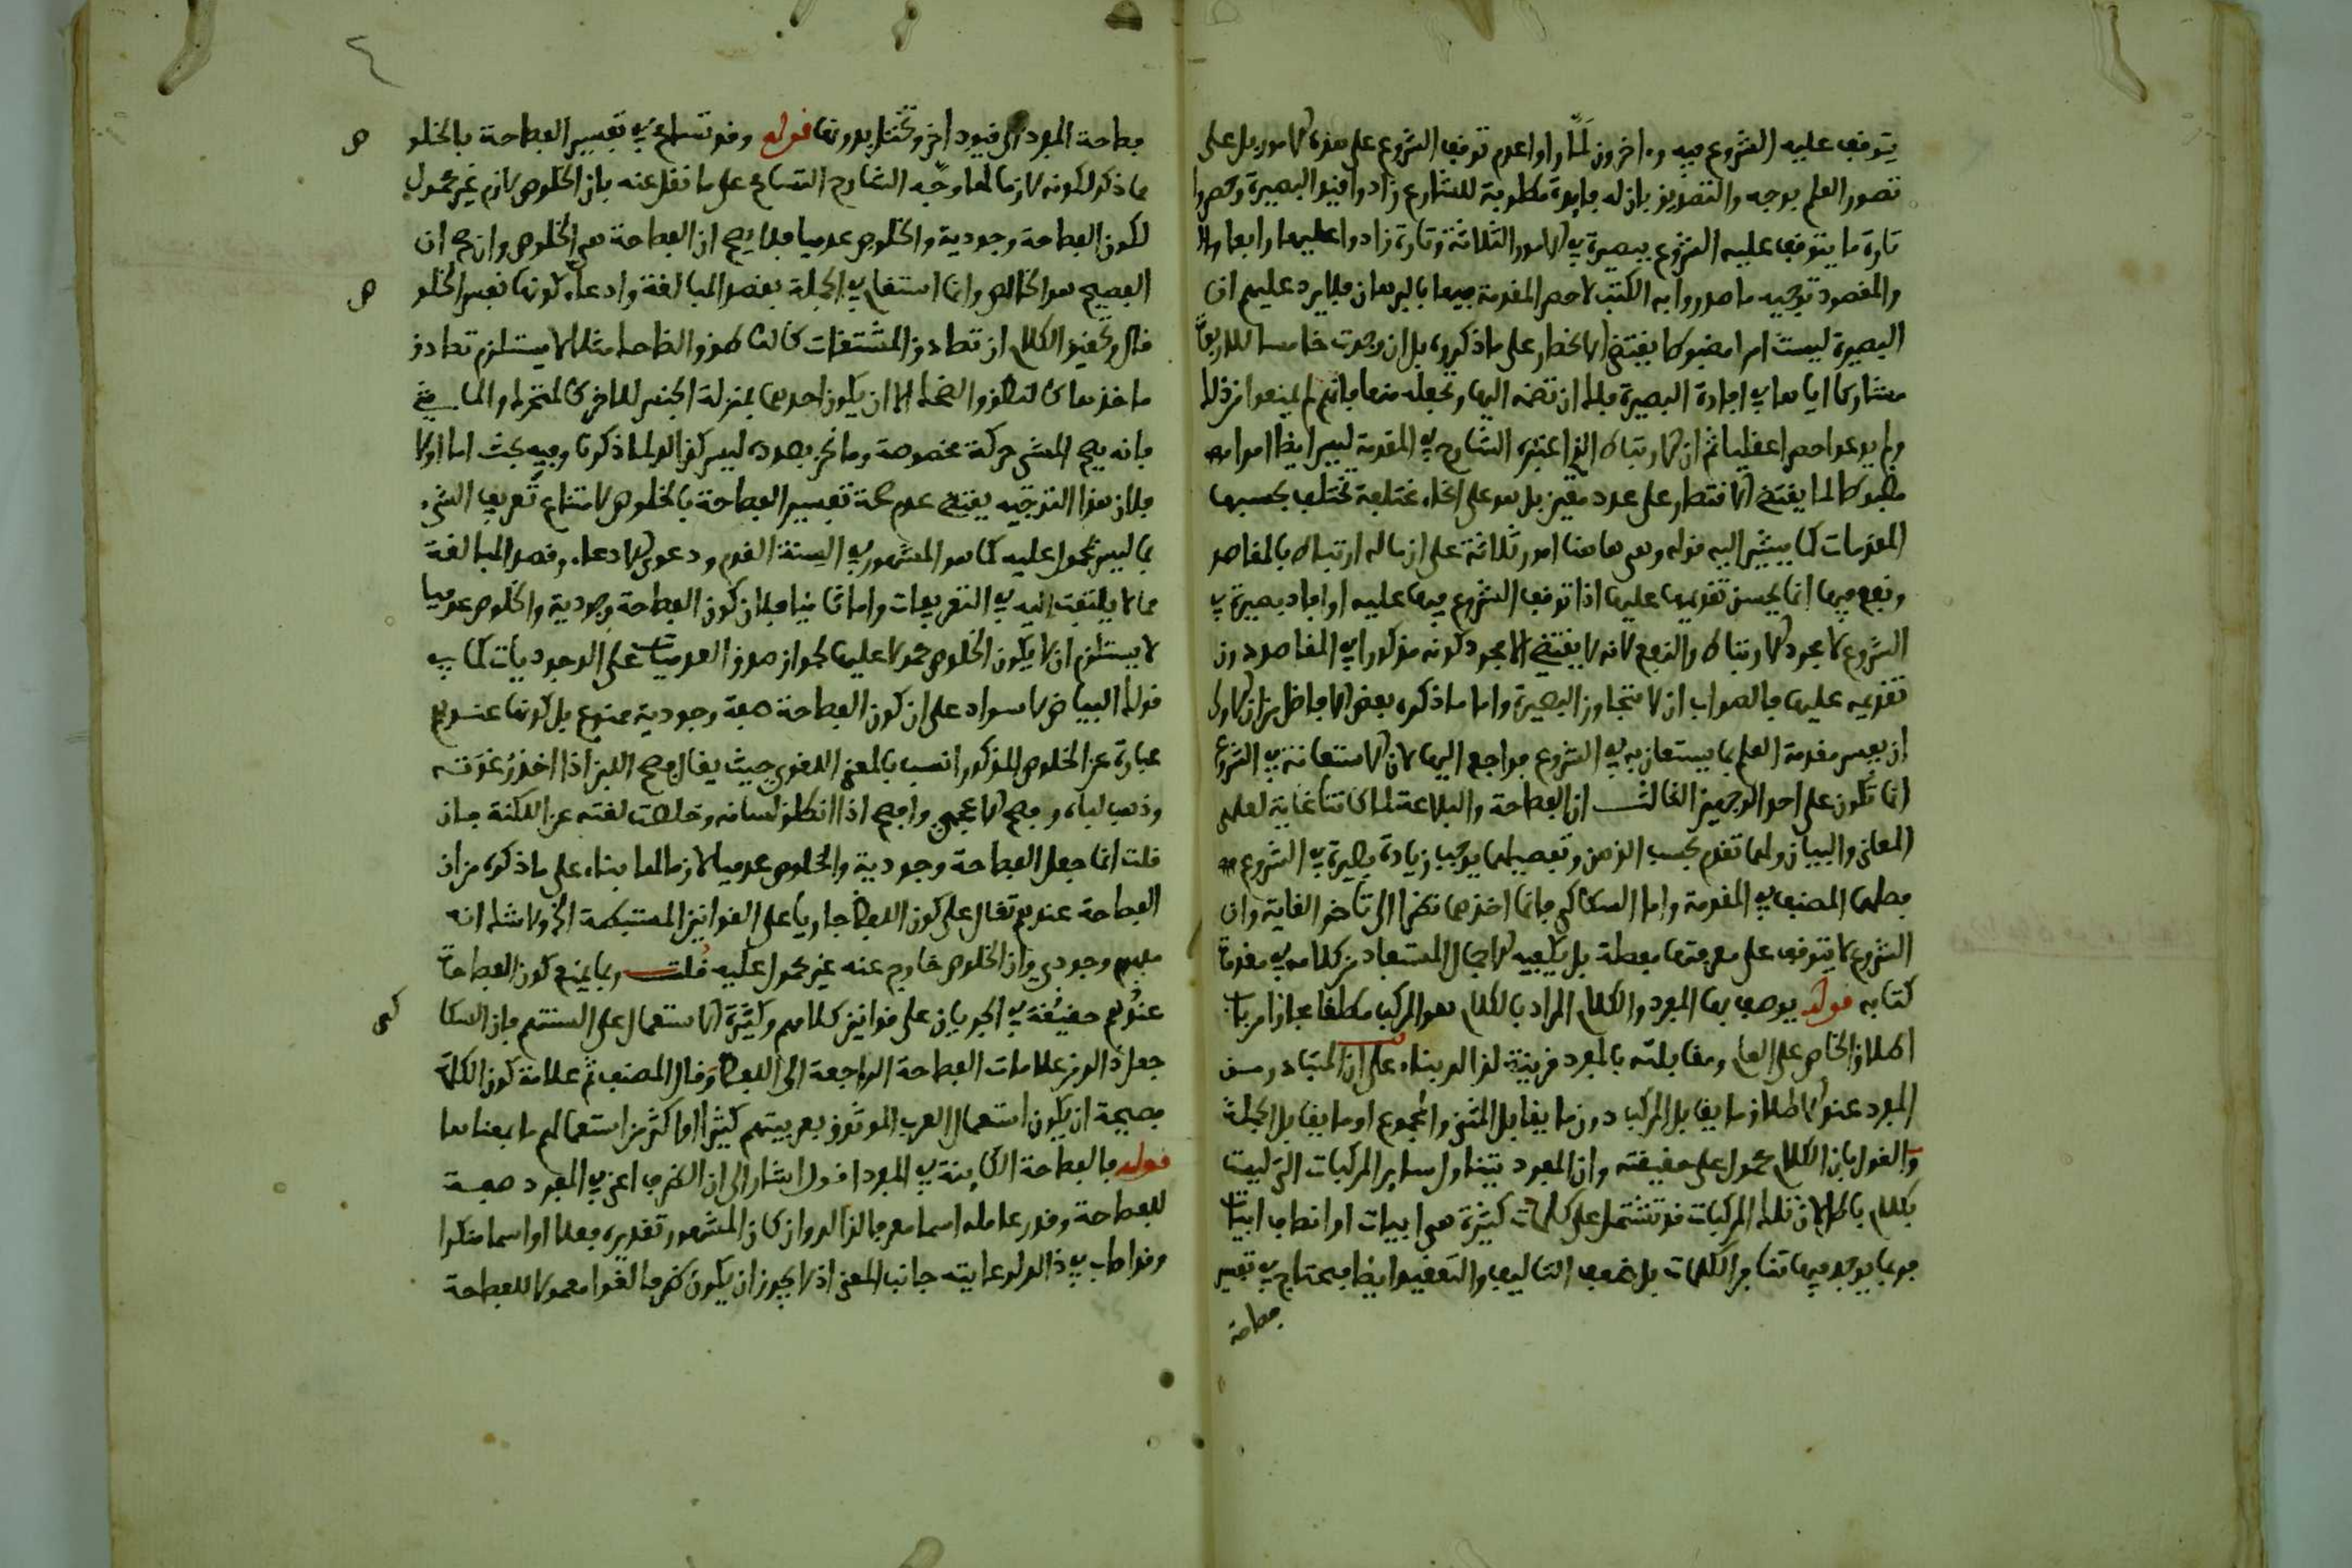 يتوقف عليه الشروع فيه وءاخرون لما راوا عدم توقف الشروع على هذه الامور بل على
تصور العلم بوجه والتصديق بان له فايدة مطلوبة للشارع زادوا قيد البصيرة وحصروا
تارة ما يتوقف عليه الشروع ببصيرة في الامور الثلاثة وتارة زادوا عليها رابعا
والمقصود توجيه ما صدروا به الكتب لا حصر المقدمة فيها بالبرهان فلا يرد عليهم ان
البصيرة ليست امرا مضبوطا يقتضي الانحصار على ما ذكروه بل ان وجدت خامسا للاربعة
مشاركا اياها في افادة البصيرة فلك ان تضمه اليها وتجعله منها فانهم لم يمنعوا من ذلك
ولم يدعوا حصرا عقليا ثم ان الارتباط الذي اعتبره الشارح في المقدمة ليس ايضا امرا
مضبوطا لما يقتضي الاقتصار على عدد معين بل هو على انحاء مختلفة تختلف بحسبها
المقدمات كما يشير اليه قوله وهي هاهنا امور ثلاثة على ان ماله ارتباط بالمقاصد
ونفع فيها انما يحسن تقديمها عليها اذا توقف الشروع فيها عليه او افاد بصيرة في
الشروع لا مجرد الارتباط والنفع لانه لا يقتضي الا مجرد كونه مذكورا في المقاصد دون
تقديمه عليها فالصواب ان لا تتجاوز البصيرة واما ما ذكره بعض الافاضل من ان الاولى
ان يفسر مقدمة العلم بما يستعان به في الشروع فراجع اليها لان الاستعانة في الشروع
انما تكون على احد الوجهين الثالث ان الفصاحة والبلاغة لما كانتا غاية لعلمي
المعاني والبيان ولها تقدم بحسب الذهن وتفصيلها يوجب زيادة بصيرة في الشروع
فصلها المصنف في المقدمة واما السكاكي فانما اخذها نظرا الى تاخر الغاية وان
الشروع لا يتوقف على معرفتها مفصلة بل يكفيه الاجمال المستفاد من كلامه في مقدمة
كتابه قوله يوصف بها المفرد والكلام المراد بالكلام هو المركب مطلقا مجازا من باب
اطلاق الخاص على العام ومقابلته بالمفرد قرينة لذالك بناء على ان المتبادر من
المفرد عند الاطلاق ما يقابل المركب دون ما يقابل المثنى والمجموع او ما يقابل الجملة
والقول بان الكلام محمول على حقيقته وان المفرد يتناول ساير المركبات التي ليست
بكلام باطل لان تلك المركبات قد تشتمل على كلمات كثيرة هي ابيات او انصاف ابيات
فربما يوجد فيها تنافر الكلمات بل ضعف التاليف والتعقيد ايضا فيحتاج في تفسير
فصاحة
فصاحة المفرد الى قيود اخر وتختل بدونها قوله وقد تسامح في تفسير الفصاحة بالخلوص
مما ذكر لكونه لازما لها وجه الشارح التسامح على ما نقل عنه بان الخلوص لازم غير محمول
لكون الفصاحة وجودية والخلوص عدميا فلا يصح ان الفصاحة هي الخلوص وان صح ان
الفصيح هو الخالص وانما استقام في الجملة بقصد المبالغة وادعاء كونها نفس الخلوص
قال وتحقيق الكلام ان تصادق المشتقات كالناطق والضاحك مثلا لا يستلزم تصادق
ماخذها كالنطق والضحك الا ان يكون احدهما بمنزلة الجنس للاخر كالمتحرك والماشي
فانه يصح المشي حركة مخصوصة وما نحن بصدده ليس كذالك لما ذكرنا وفيه بحث اما اولا
فلان هذا التوجيه يقتضي عدم صحة تفسير الفصاحة بالخلوص لامتناع تعريف الشيء
بما ليس محمولا عليه كما هو المشهور في السنة القوم ودعوى الادعاء وقصد المبالغة
مما لا يلتفت اليه في التعريفات واما ثانيا فلان كون الفصاحة وجودية والخلوص عدميا
لا يستلزم ان لا يكون الخلوص محمولا عليها لجواز صدق العدميات على الوجوديات كما في
قولك البياض لا سواد على ان كون الفصاحة صفة وجودية ممنوع بل كونها عندهم
عبارة عن الخلوص المذكور انسب بالمعنى اللغوي حيث يقال فصح اللبن اذا اخذ رغوته
وذهب لباءه وفصح الاعجمي وافصح اذا انطلق لسانه وخلصت لغته عن اللكنة فان
قلت انما جعل الفصاحة وجودية والخلوص عدميا لازما لها بناء على ما ذكره من ان
الفصاحة عندهم تقال على كون اللفظ جاريا على القوانين المستنبطة الخ ولا شك انه
مفهوم وجودي وان الخلوص خارج عنه غير محمول عليه قلت ربما يمنع كون الفصاحة
عندهم حقيقة في الجريان على قوانين كلامهم وكثرة الاستعمال على السنتهم فان السكاكي
جعل ذالك من علامات الفصاحة الراجعة الى اللفظ وقال المصنف ثم علامة كون الكلمة
فصيحة ان يكون استعمال العرب الموثوق بعربيتهم كثيرا او اكثر من استعمالهم ما بمعناها
قوله فالفصاحة الكاينة في المفرد اقول اشار الى ان الظرف اعني في المفرد صفة
للفصاحة وقدر عامله اسما معرفا لذالك وان كان المشهور تقديره فعلا او اسما منكرا
وقد اصاب في ذالك لرعايته جانب المعنى اذ لا يجوز ان يكون ظرفا لغوا معمولا للفصاحة